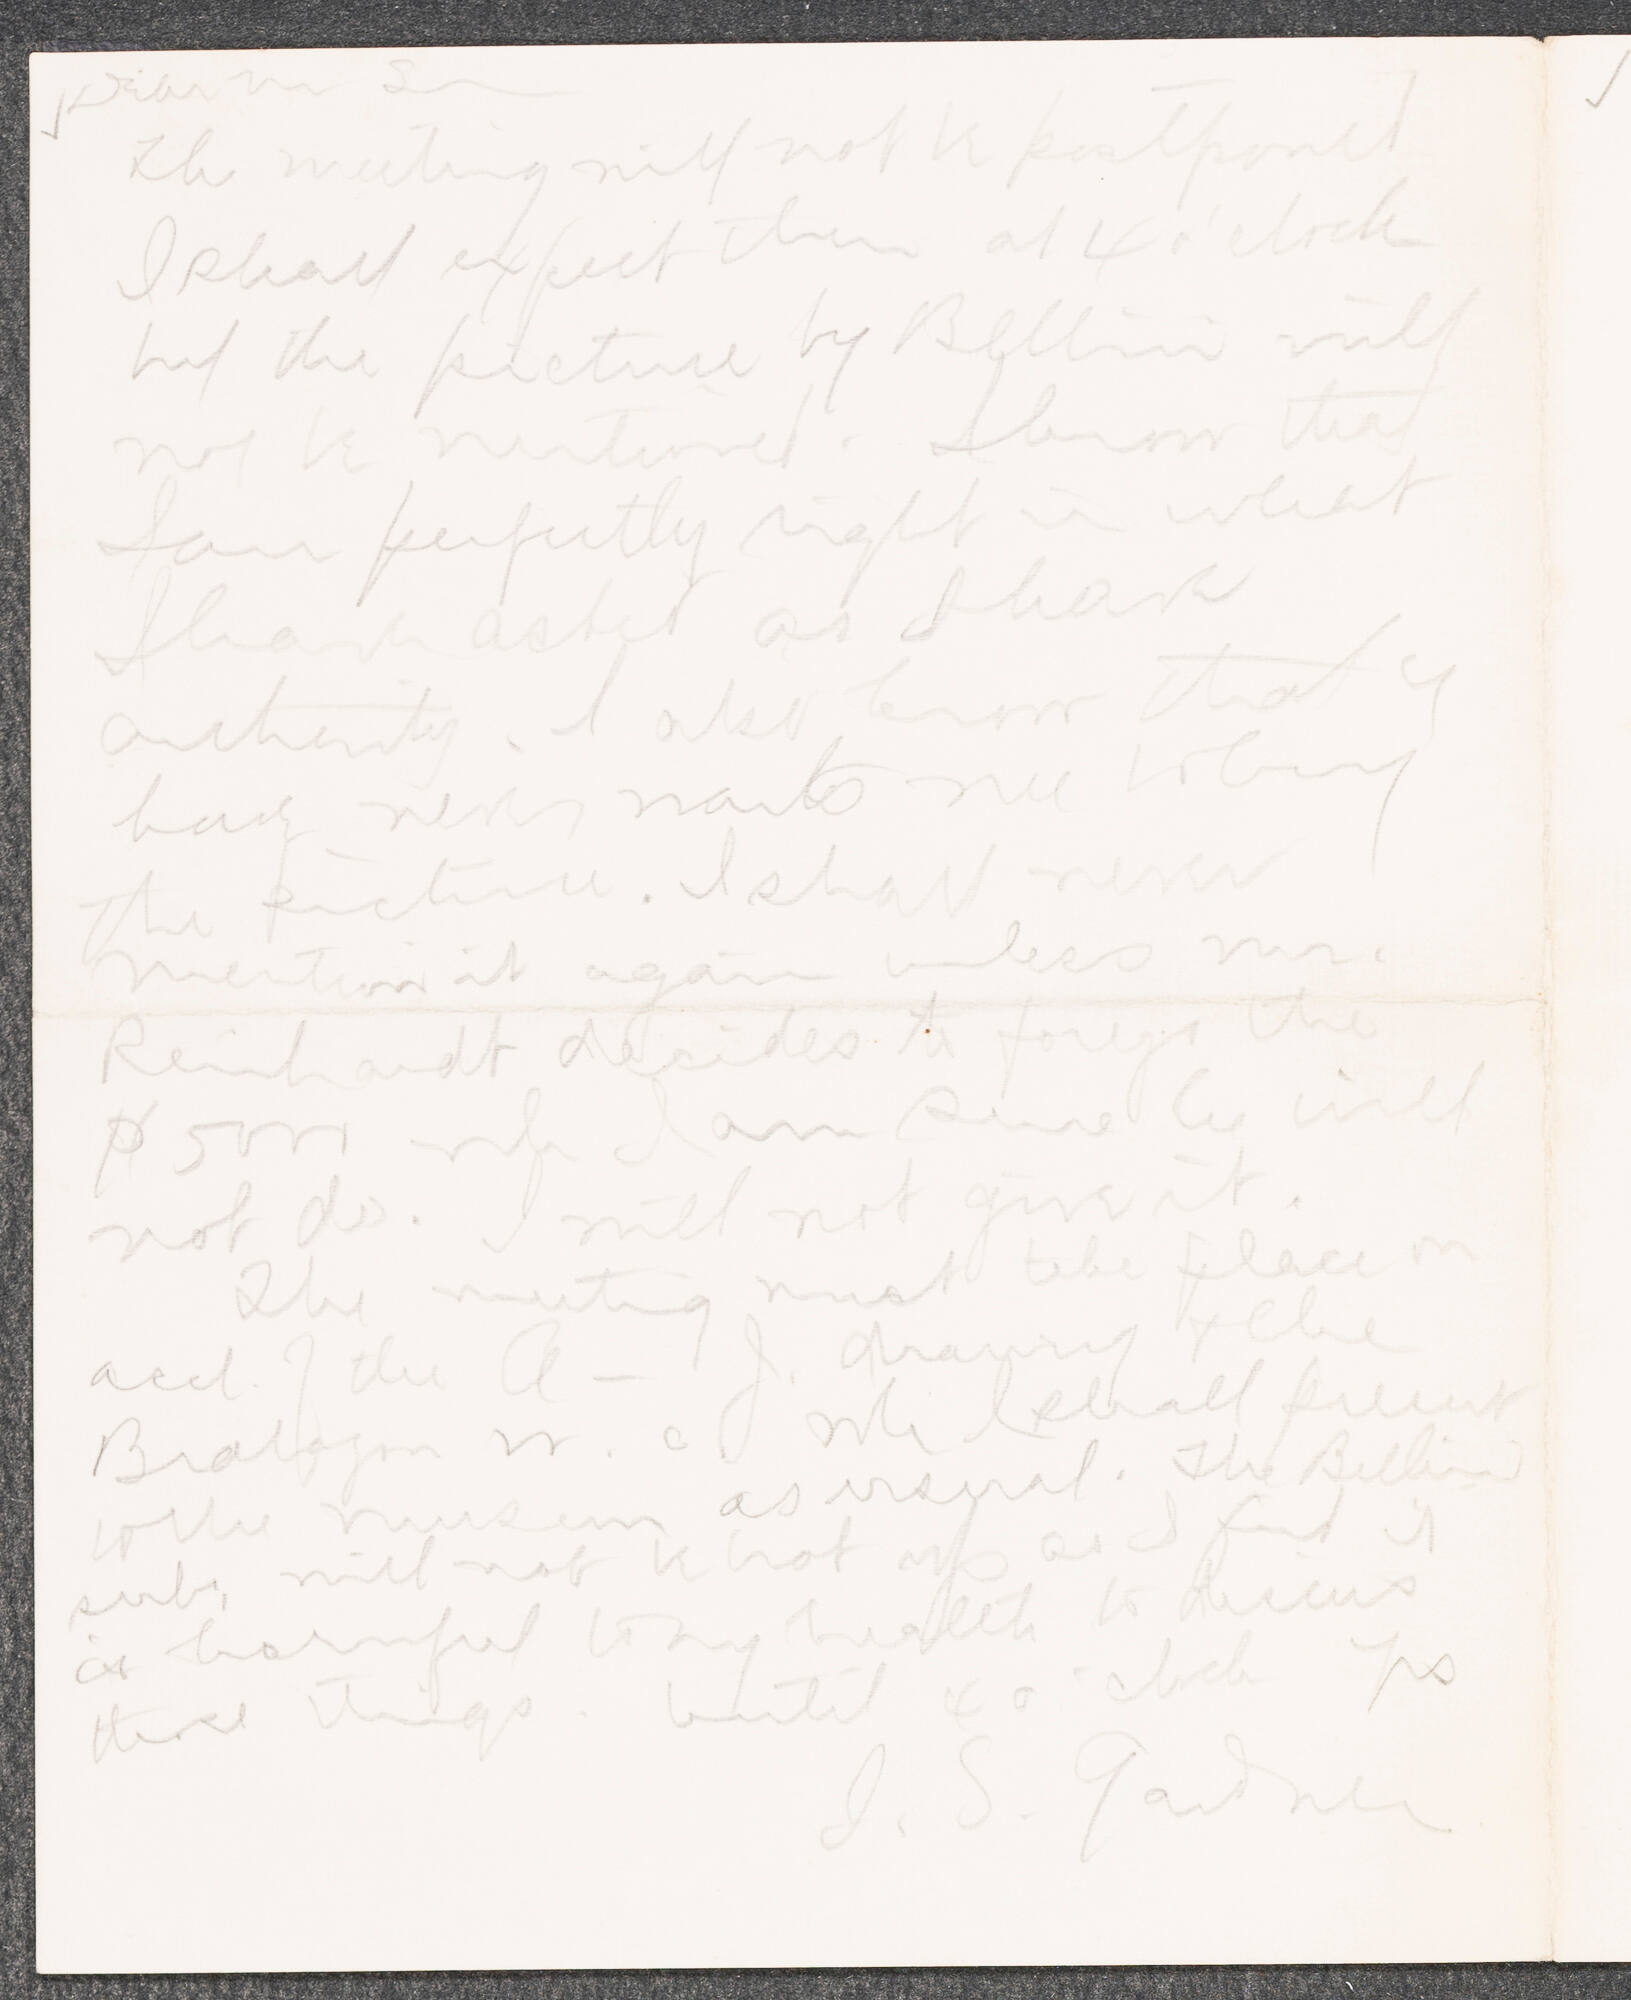 Dear Mr
The meeting will not be postponed
I shall expect them at 4 o'clock
but the picture by Bellini will
not be mentioned. I know that
I am perfectly right in what
I have asked as I have
authority. I also know that
never wants me to buy
the picture. I shall never
mention it again unless Mr.
Reinhardt decides to forego the
$5000 wh I am sure he will
not do. I will not give it.
The meeting must take place on
acct. of the A— J. drawing & the
W. C. wh I shall present
to the museum as usual. The Bellini
will not be brot up as I find it
is harmful to my health to discuss
these things. Until 4 o'clock Yrs
I. S. Gardner